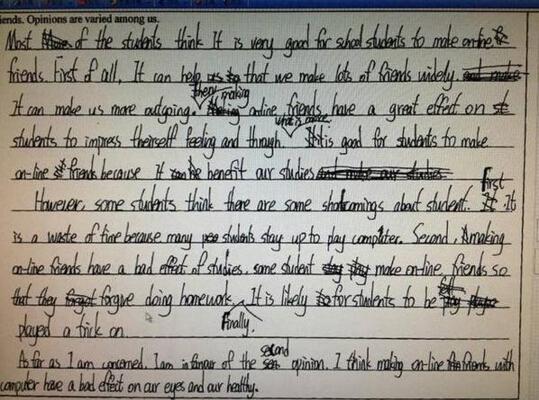 iends. Opinions are varied among us.
Most of the students think It is very good for school students to make on-line
friends. First of all, It can help us that we make lots of friends widely.
It can make us more outgoing. then, making on-line friends have a great effect on
students to impress theirself feeling and through. what is more, It is good for students to make
on-line friends because It can be benefit our studies
However, some students think there are some shortcomings about student. First It
is a waste of time because many students stay up to play computer. Second, making
on-line friends have a bad effect of studies, some student make on-line friends so
that they forgive doing homework. Finally. It is likely for students to be
played a trick on.
As far as I am concerned, I am in favour of the second opinion. I think making on-line friends with
computer have a bad effect on our eyes and our healthy.